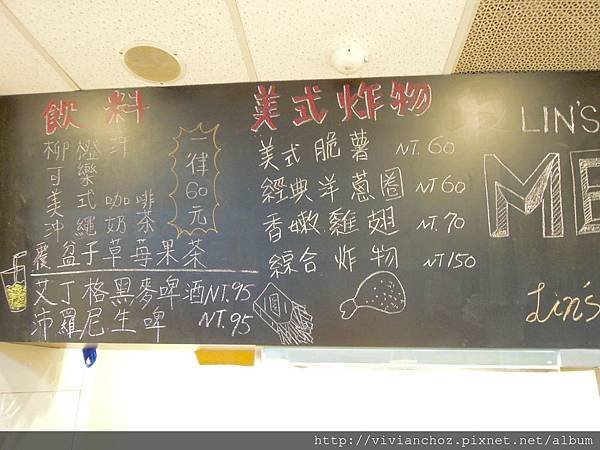 飲料
柳橙汁
可樂
美式咖啡
沖繩奶茶
覆盆子草莓果茶
一律60元
艾丁格黑麥啤酒 NT.95
沛羅尼生啤 NT.95
美式炸物
美式脆薯 NT.60
經典洋蔥圈 NT60
香嫩雞翅 NT.70
綜合炸物 NT150
LIN'S
ME
Lin's
http://vivianchoz.pixnet.net/album